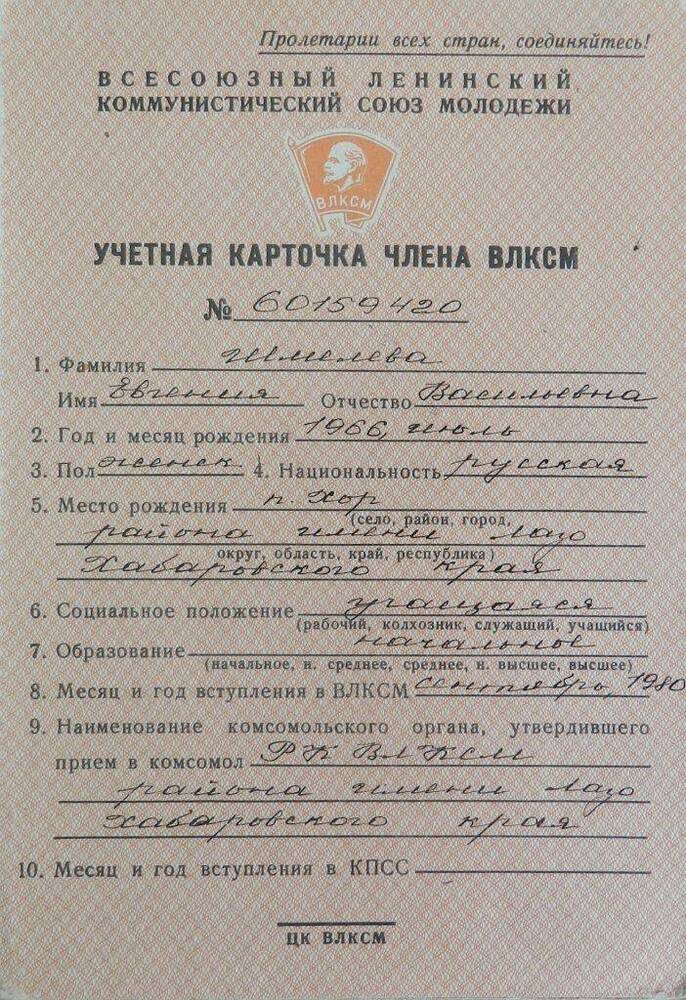 Пролетарии всех стран, соединяйтесь!
ВСЕСОЮЗНЫЙ ЛЕНИНСКИЙ
КОММУНИСТИЧЕСКИЙ СОЮЗ МОЛОДЕЖИ
ВЛКСМ
УЧЕТНАЯ КАРТОЧКА ЧЛЕНА ВЛКСМ
№ 60159420
1. Фамилия Шмелева
Имя Евгения Отчество Васильевна
2. Год и месяц рождения 1966, июль
3. Пол женск. 4. Национальность русская
5. Место рождения п. Хор
(село, район, город,
района имени Лазо
округ, область, край, республика)
Хабаровского края
6. Социальное положение учащаяся
(рабочий, колхозник, служащий, учащийся)
7. Образование начальное
(начальное, н. среднее, среднее, н. высшее, высшее)
8. Месяц и год вступления в ВЛКСМ сентябрь, 1980
9. Наименование комсомольского органа, утвердившего
прием в комсомол РК ВЛКСМ
района имени Лазо
Хабаровского края
10. Месяц и год вступления в КПСС
ЦК ВЛКСМ